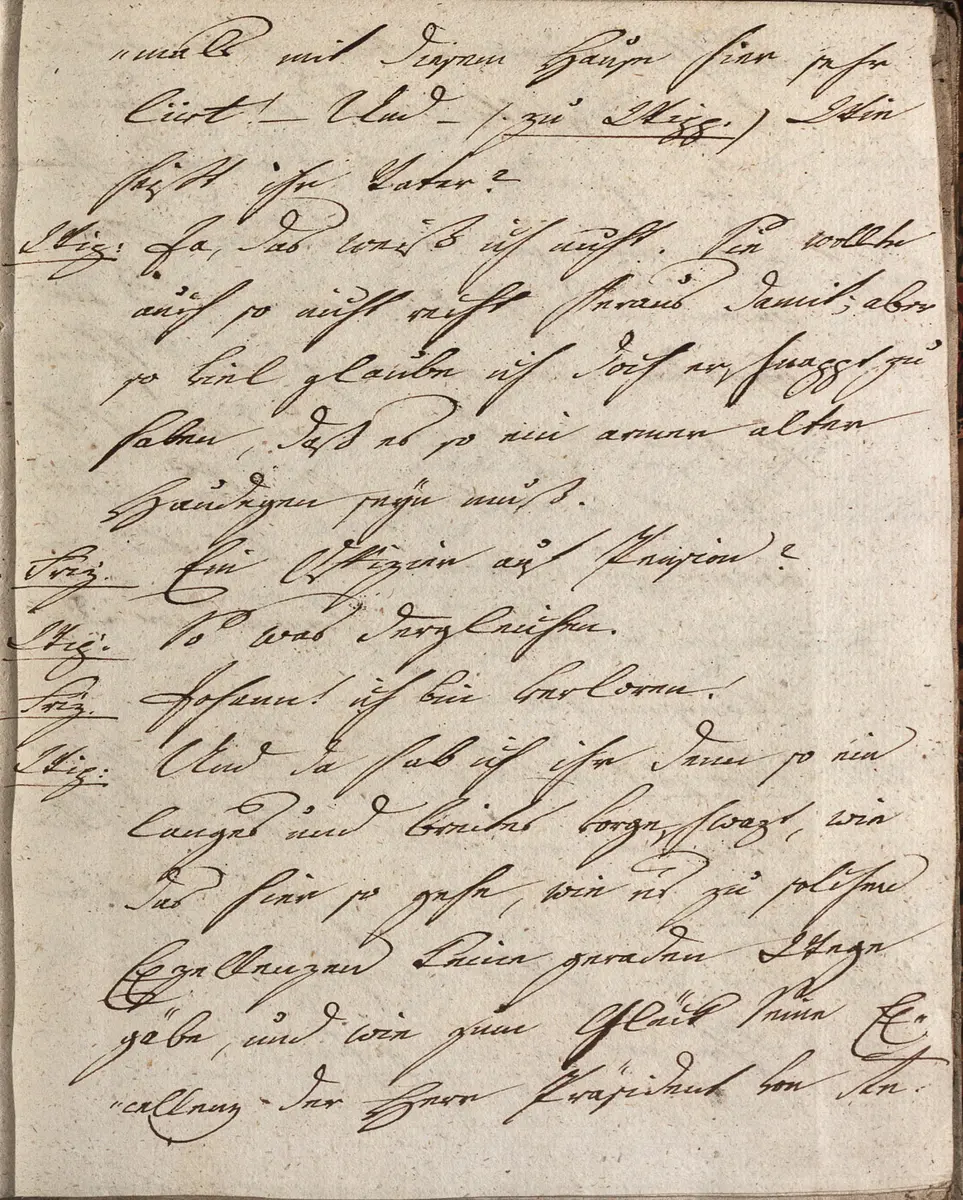 "mals mit diesem Hause hier sehr
liirt! – Und – /: zu Wizz. :/ Wie
heißt ihr Vater?
Wiz: Ja, das weiß ich nicht. Sie wollte
auch so nicht recht heraus damit; aber
so viel glaube ich doch erschnappt zu
haben, daß es so ein armer alter
Haudegen seyn muß.
Friz. Ein Offizier auf Pension?
Wiz. So was dergleichen.
Friz. Johann! ich bin verloren.
Wiz: Und da hab ich ihr denn so ein
langes und breites vorgeschwazt, wie
das hier so gehe, wie es zu solchen
Exzellenzen keine geraden Wege
gäbe, und wie zum Glück Seine Ex"
"cellenz der Herr Präsident von